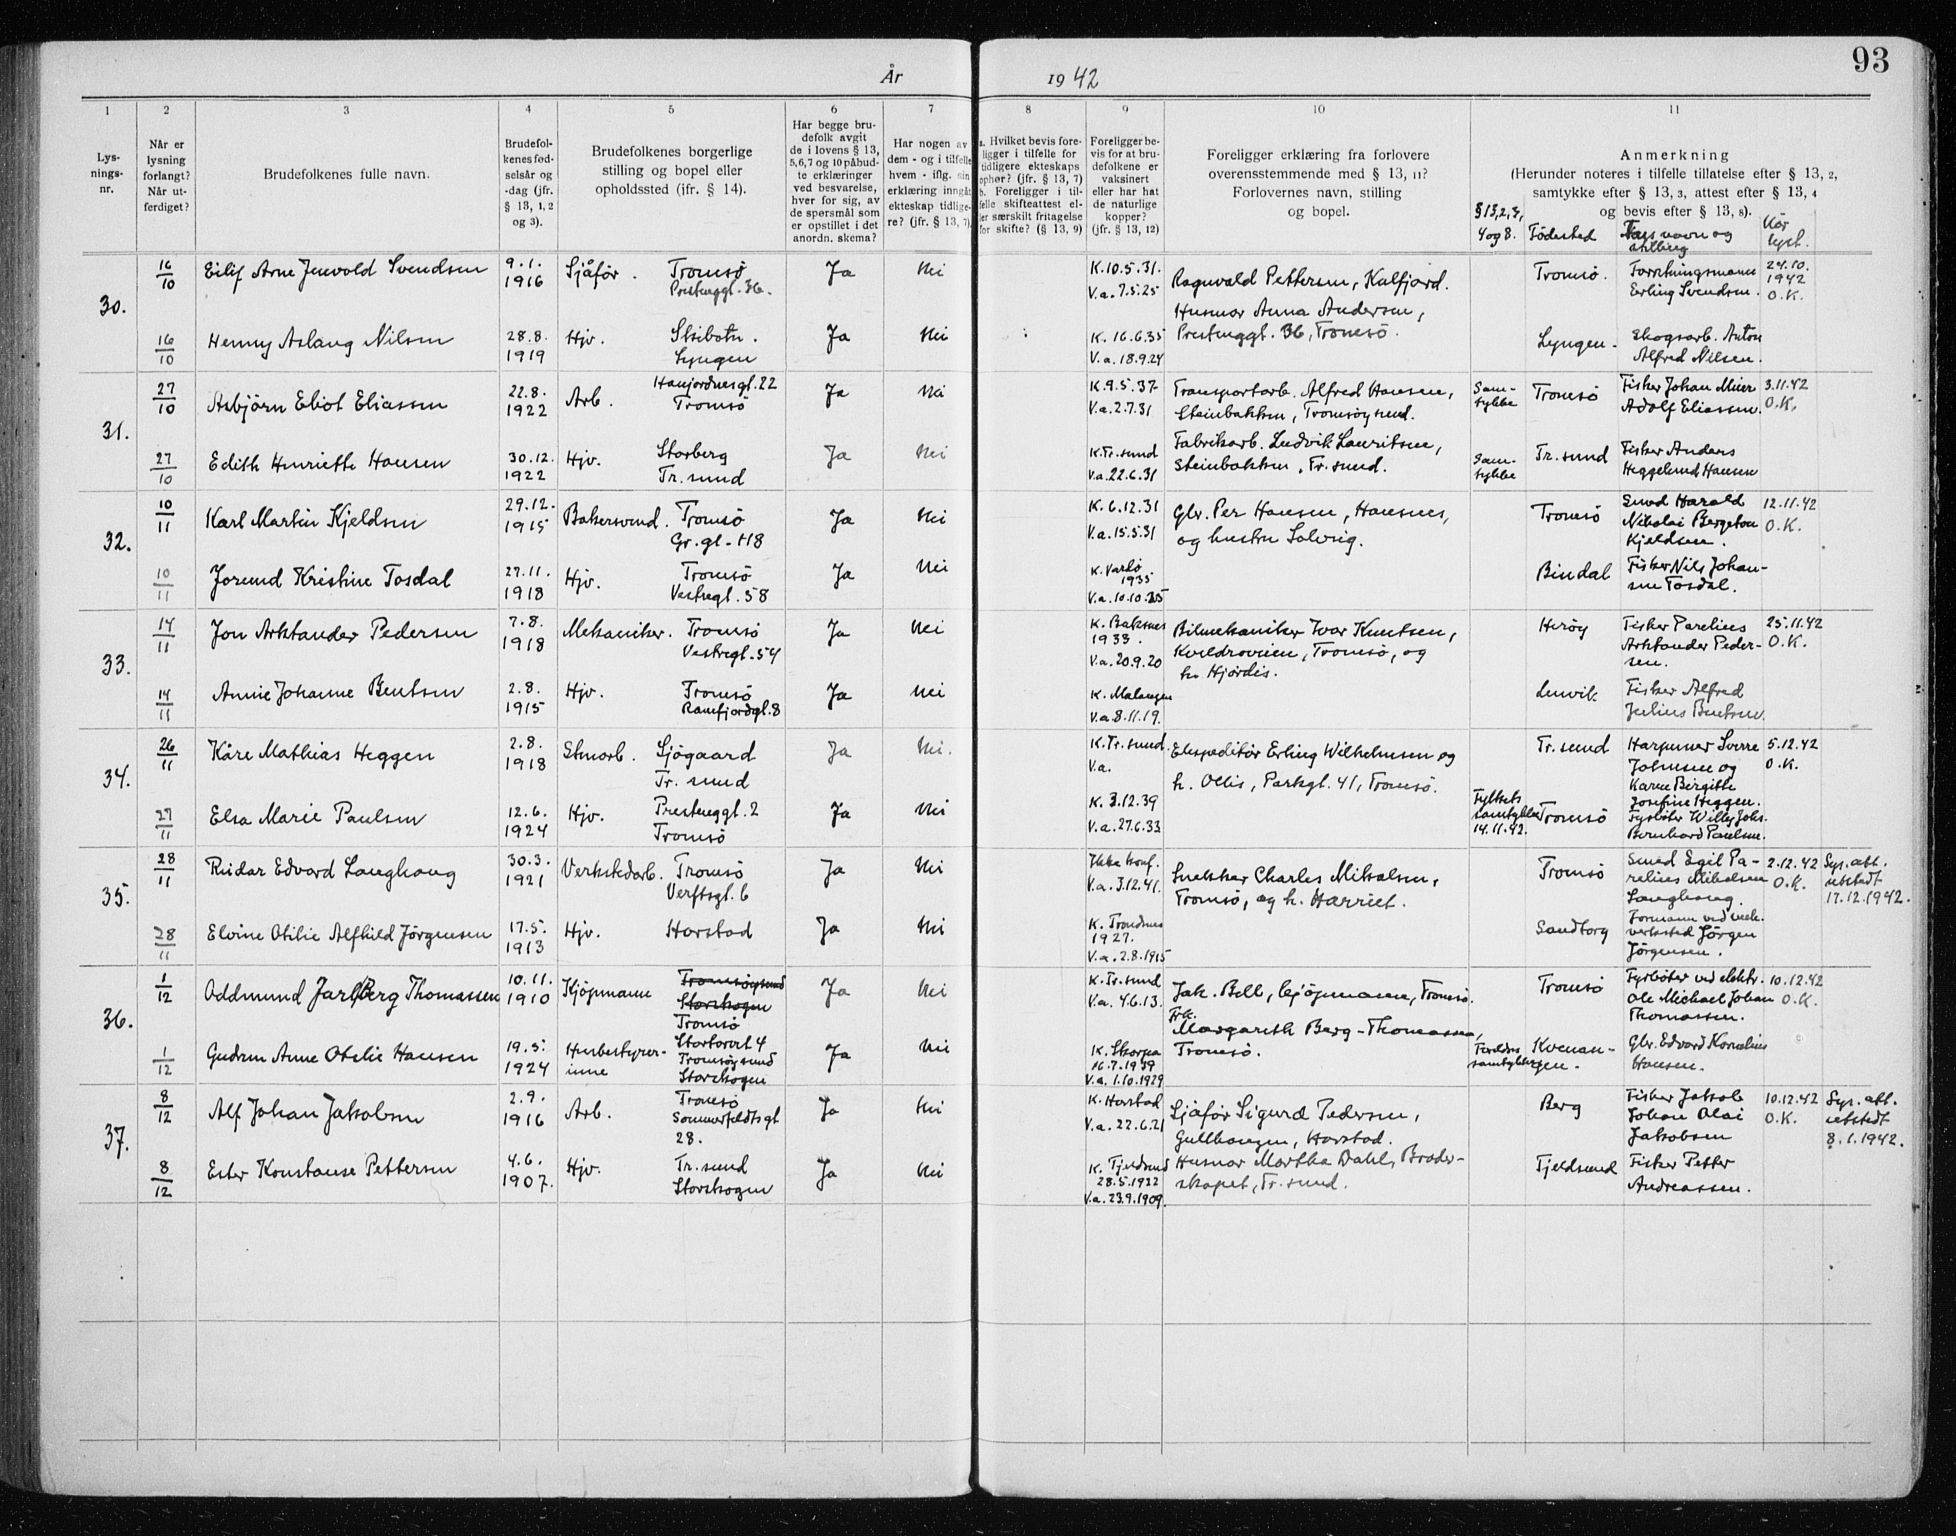 År 1942
93
1 2 3 4 5 6 7 8 9 10 11
Lys-
nings-
nr.
Når er
lysning
forlangt?
Når ut-
ferdiget?
Brudefolkenes fulle navn.
Brudefol-
kenes fød-
selsår og
-dag (jfr.
§ 13, 1, 2
og 3).
Brudefolkenes borgerlige
stilling og bopel eller
opholdssted (jfr. § 14).
Har begge bru-
defolk avgit
de i lovens § 13,
5,6,7 og 10 påbud-
te erklæringer
ved besvarelse,
hver for sig, av
de spørsmål som
er opstillet i det
anordn. skema?
Har nogen av
dem - og i tilfelle
hvem - iflg. sin
erklæring inngått
ekteskap tidlige-
re? (jfr. § 13, 7).
a. Hvilket bevis fore-
ligger i tilfelle for
tidligere ekteskaps
ophør? (jfr. § 13, 7)
b. Foreligger i til-
felle skifteattest el-
ler særskilt fritagelse
for skifte? (§ 13, 9)
Foreligger be-
vis for at bru-
defolkene er
vaksinert
eller har hat
de naturlige
kopper?
(jfr. § 13, 12)
Foreligger erklæring fra forlovere
overensstemmende med § 13, 11?
Forlovernes navn, stilling
og bopel.
Anmerkning
(Herunder noteres i tilfelle tillatelse efter § 13, 2,
samtykke efter § 13, 3, attest efter § 13, 4
og bevis efter § 13, 8).
§ 13,2,3,
4 og 8. Födested Fars navn og
stilling Når
lyst.
30.
16/10 Eilif Arne Jenvold Svendsen 9.1.
1916 Sjåför. Tromsö
Prestenggt. 36. Ja Nei K. 10.5.31.
V.a. 7.5.25 Ragnvald Pettersen, Kalfjord. Tromsö. Forretningsmann
Erling Svendsen. 24.10.
1942
O.K.
16/10 Henny Aslaug Nilsen 28.8.
1919 Hjv. Skibotn.
Lyngen Ja Nei K. 16.6.35
V.a. 18.9.24 Husmor Anna Andersen,
Prestenggt. 36, Tromsö. Lyngen - Skogsarb. Anton
Alfred Nilsen.
31.
27/10 Asbjörn Eliot Eliassen 22.8.
1922 Arb. Hansjordnesgt. 22
Tromsö Ja Nei K. 9.5.37
V.a. 2.7.31 Transportarb. Alfred Hansen,
Steinbakken, Tromsöysund. Sam-
tykke Tromsö Fisker Johan Meier
Adolf Eliassen. 3.11.42
O.K.
27/10 Edith Henriette Hansen 30.12.
1922 Hjv. Storberg
Tr. sund Ja Nei K. Tr. sund
V.a. 22.6.31 Fabrikarb. Ludvik Lauritsen,
Steinbakken, Tr. sund. Sam-
tykke Tr. sund Fisker Anders
Heggelund Hansen
32.
10/11 Karl Martin Kjeldsen 29.12.
1915 Bakersvend. Tromsö
Gr. gt. 118 Ja Nei K. 6.12.31
V.a. 15.5.31 Gbr. Per Hansen, Hansnes,
og hustru Solveig. Tromsö Smed Harald
Nikolai Bergeton
Kjeldsen. 12.11.42
O.K.
10/11 Jorund Kristine Tosdal 27.11.
1918 Hjv. Tromsö
Vestregt. 58 Ja Nei K. Vardö
1935
V.a. 10.10. Bindal Fisker Nils Johan-
sen Tosdal.
33.
14/11 Jon Arktander Pedersen 7.8.
1918 Mekaniker. Tromsö
Vestregt. 54 Ja Nei K. Baksnes
1933.
V.a. 20.9.20 Bilmekaniker Ivar Knutsen,
Kveldroveien, Tromsö, og
h. Hjördis. Heröy Fisker Parelius
Arktander Peder-
sen. 25.11.42
O.K.
14/11 Annie Johanne Bentsen 2.8.
1915 Hjv. Tromsö
Ramfjordgt. 8 Ja Nei K. Malangen
V.a. 8.11.19. Lenvik Fisker Alfred
Julius Bentsen.
34.
26/11 Kåre Mathias Heggen 2.8.
1918 Stenarb. Sjögaard
Tr. sund Ja Nei. K. Tr. sund.
V.a. Ekspeditör Erling Wilhelmsen og
h. Ollis, Parkgt. 41, Tromsö. Tr. sund Harpuner Sverre
Johnsen og
Karen Birgitte
Josefine Heggen. 5.12.42
O.K.
27/11 Elsa Marie Paulsen 12.6.
1924 Hjv. Prestenggt. 2
Tromsö Ja Nei K. 3.12.39
V.a. 27.6.33 Fylkets
samtykke
14.11.42. Tromsö Fyrböter Willy Johs.
Bernhard Paulsen.
35.
28/11 Reidar Edvard Langhaug 30.3.
1921 Verkstedarb. Tromsö
Verftsgt. 6 Ja Nei Ikke konf.
V.a. 3.12.41. Snekker Charles Mikalsen,
Tromsö, og h. Harriet. Tromsö Smed Egil Pa-
relius Mikalsen
Langhaug. 2.12.42
O.K. Lys. att.
utstedt
17.12.1942.
28/11 Elvine Otilie Alfhild Jörgensen 17.5.
1913 Hjv. Harstad Ja Nei K. Trondnes
1927.
V.a. 2.8.1915 Sandtorg Formann ved mek.
verksted Jörgen
Jörgensen.
36.
1/12 Oddmund Jarl Berg Thomassen 10.11.
1910 Kjöpmann Tromsöysund
Storskogen
Tromsö
Stortorvet 4 Ja Nei K. Tr. sund
V.a. 4.6.13. Jak. Bell, kjöpmann, Tromsö.
Frk.
Margareth Berg-Thomassen,
Tromsö. Tromsö Fyrböter ved elektr.
Ole Michael Johan
Thomassen. 10.12.42
O.K.
1/12 Gudrun Anne Otelie Hansen 19.5.
1924 Husbestyrer-
inne Tromsöysund
Storskogen Ja Nei K. Skorpa
16.7.1939
V.a. 1.10.1929 Foreldres
samtykke Kvenan-
gen. Gbr. Edvard Kornelius
Hansen.
37.
8/12 Alf Johan Jakobsen 2.9.
1916 Arb. Tromsö
Sommerfeldtsgt
28. Ja Nei K. Harstad
V.a. 22.6.21 Sjåför Sigurd Pedersen,
Gullhaugen, Harstad. Berg Fisker Jakob
Johan Olai
Jakobsen 10.12.42
O.K. Lys. att.
utstedt
8.1.1942.
8/12 Ester Konstanse Pettersen 4.6.
1907. Hjv. Tr. sund
Storskogen Ja Nei K. Tjeldsund
28.5.1922
V.a. 23.9.1909. Husmor Martha Dahl, Broder-
skapet, Tr. sund. Tjeldsund Fisker Petter
Andreassen.